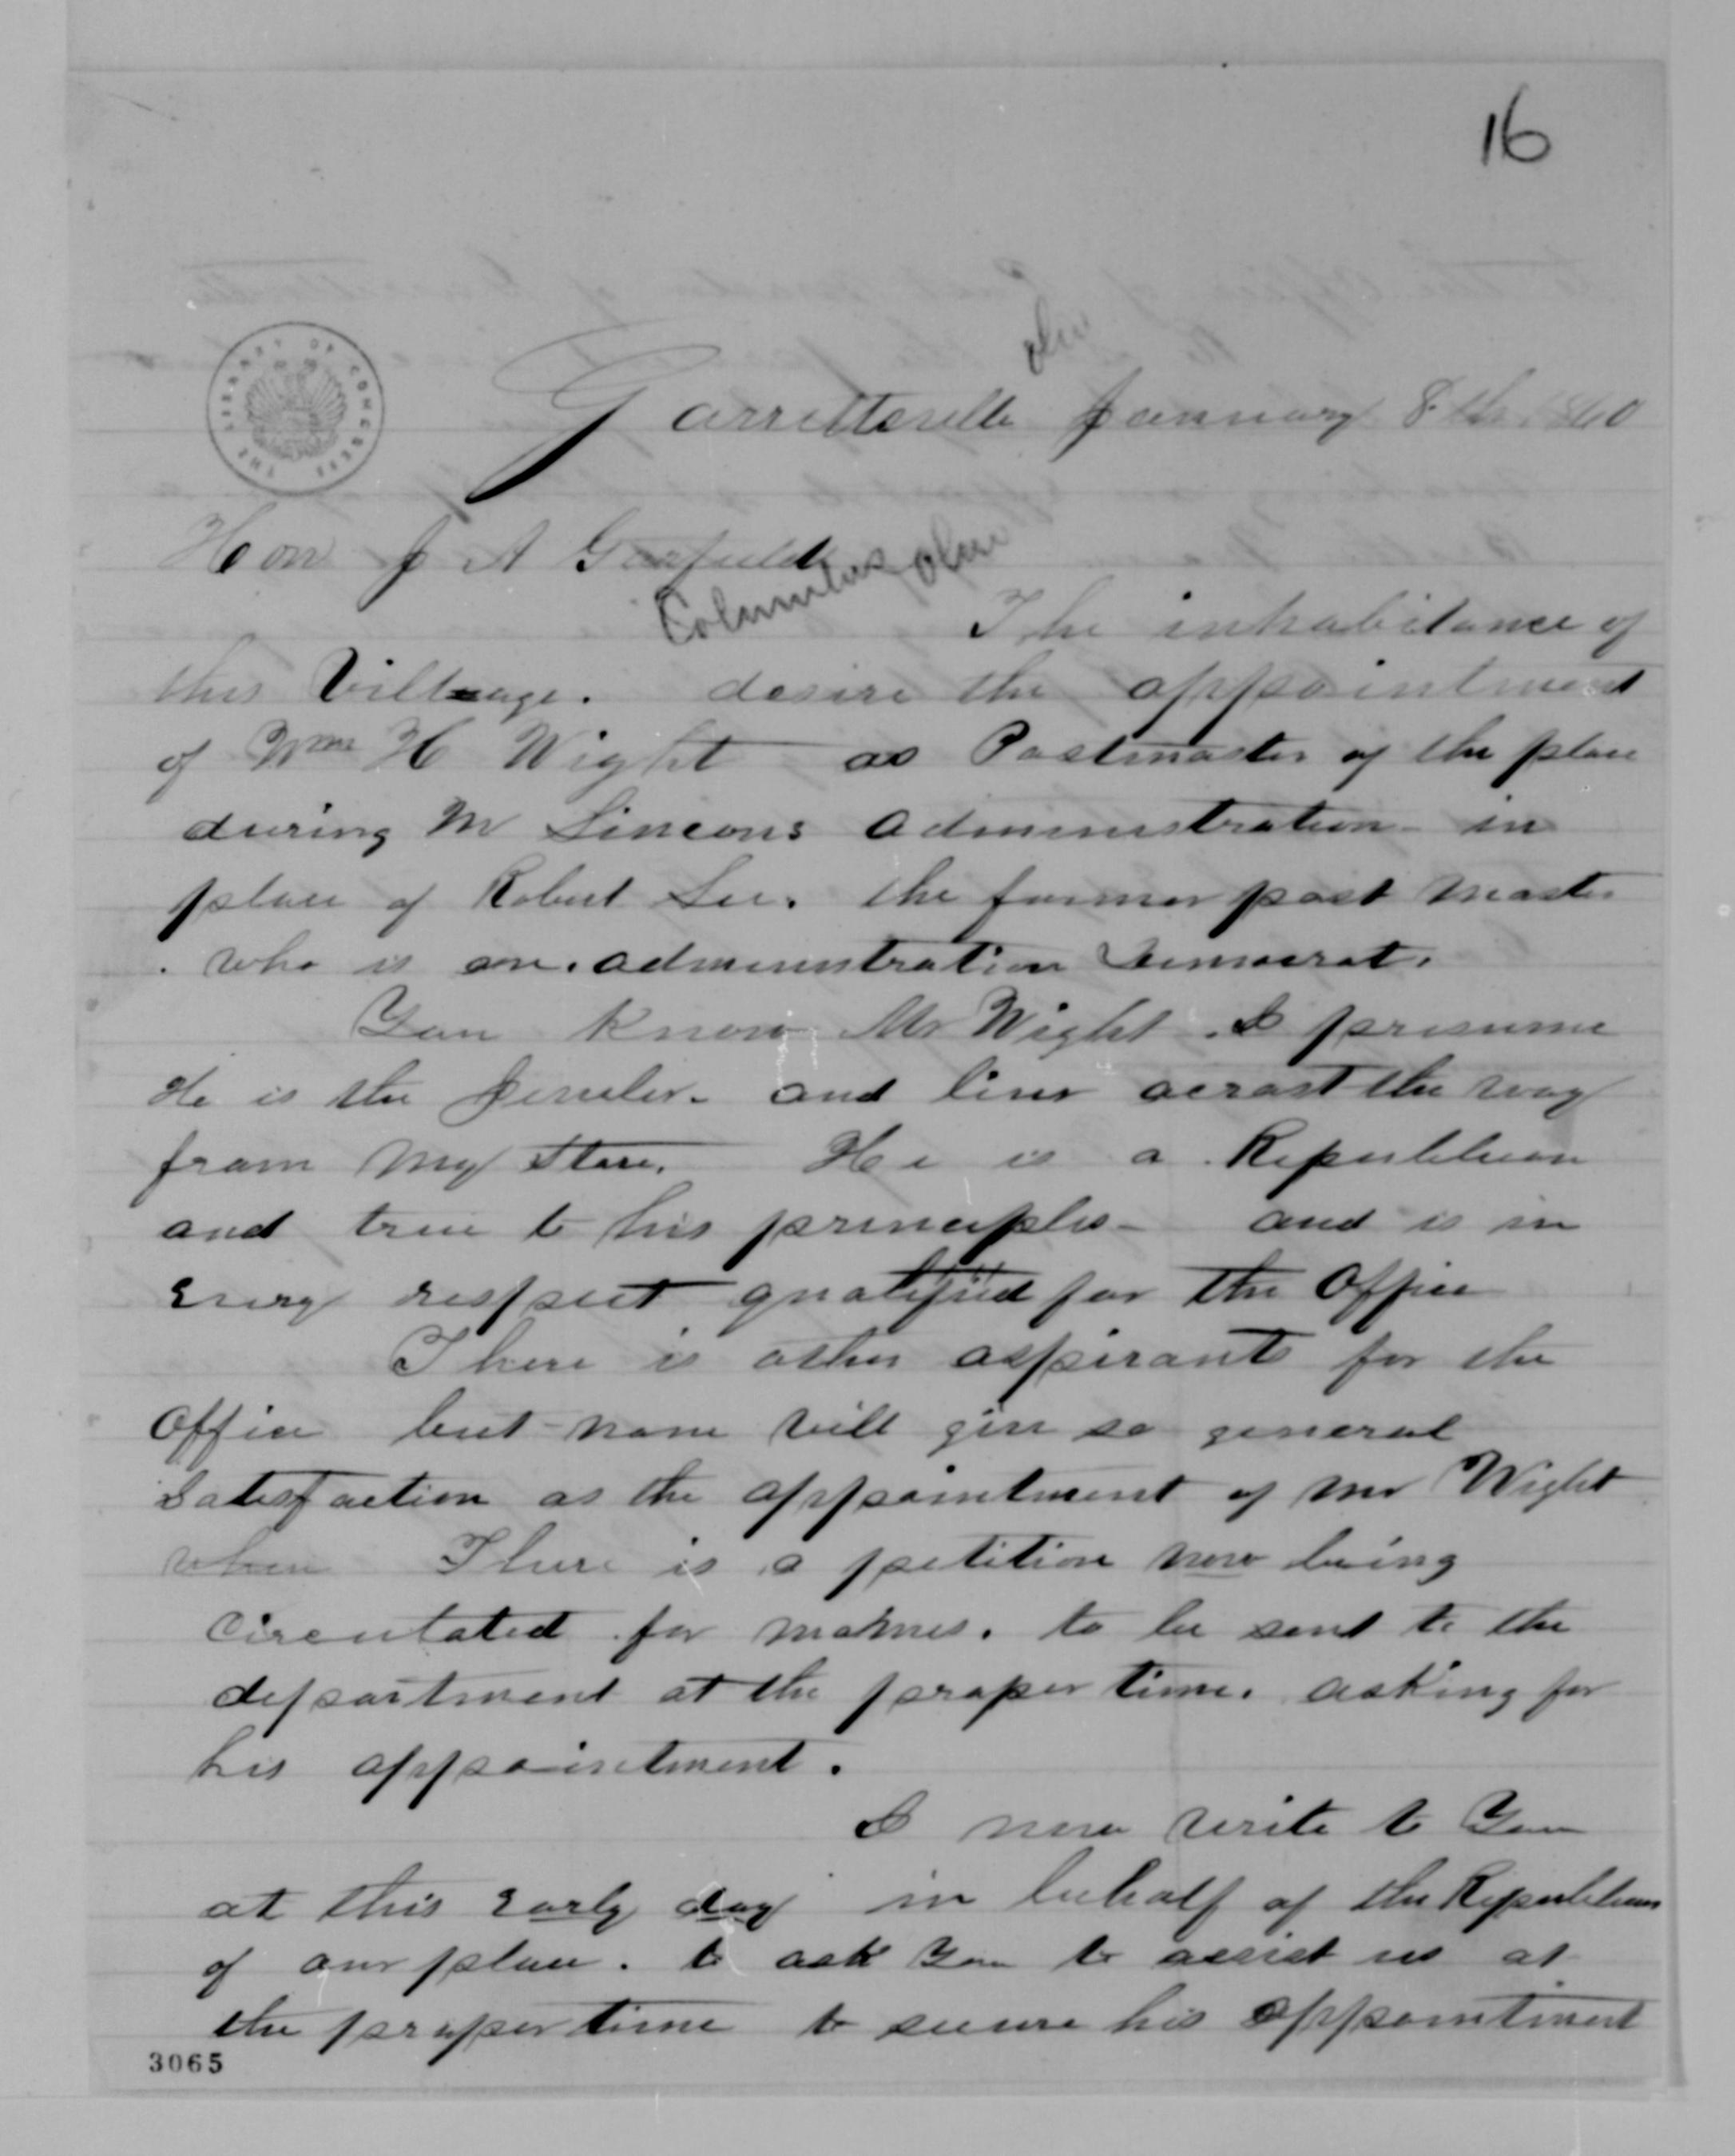 16
Ohio
Garrettsville January 8th 1860
THE LIBRARY OF CONGRESS
Hon J A Garfield
Columbus Ohio
The inhabitance of
this Village. desire the appointment
of Wm H Wight as Postmaster of the place
during Mr Lincons administration in
place of Robert Lee. the former post master
who is an. administration Democrat.
You know Mr Wight. I presume
He is the Jeweler. and lives acrost the way
from my Store. He is a Republican
and true to his principles - and is in
Every respect qualified for the Office
There is other aspirants for the
Office but none will give so general
Satisfaction as the appointment of Mr Wight
when There is a petition now being
Circulated for names. to be sent to the
department at the proper time. asking for
his appointment.
I now write to You
at this Early day in behalf of the Republicans
of our place. to ask You to assist us at
the proper time to secure his appointment
3065